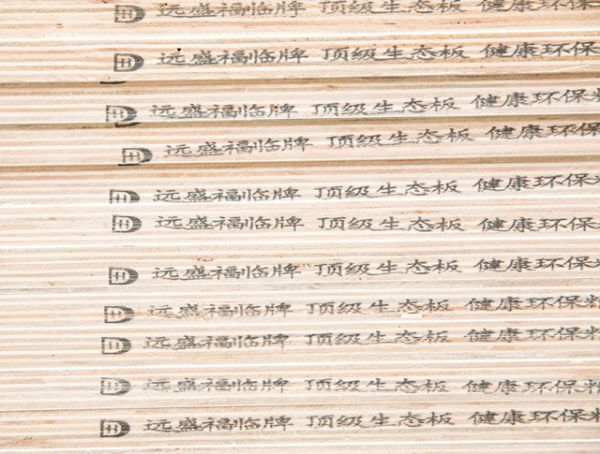 远盛福临牌 顶级生态板 健康环保
远盛福临牌 顶级生态板 健康环保
远盛福临牌 顶级生态板 健康环保
远盛福临牌 顶级生态板 健康环保
远盛福临牌 顶级生态板 健康环保
远盛福临牌 顶级生态板 健康环保
远盛福临牌 顶级生态板 健康环保
远盛福临牌 顶级生态板 健康环保
远盛福临牌 顶级生态板 健康环保
远盛福临牌 顶级生态板 健康环保
远盛福临牌 顶级生态板 健康环保